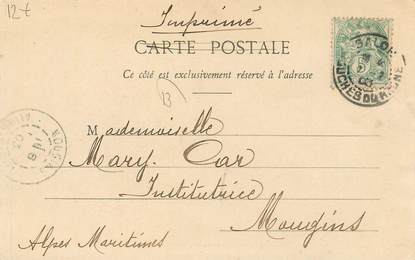 12 t
Imprimé
CARTE POSTALE
Ce côté est exclusivement réservé à l'adresse
SALON
BOUCHES DU RHONE
5
13
Mademoiselle
Mary. Car
Institutrice
Mougins
Alpes Maritimes
MOUGINS